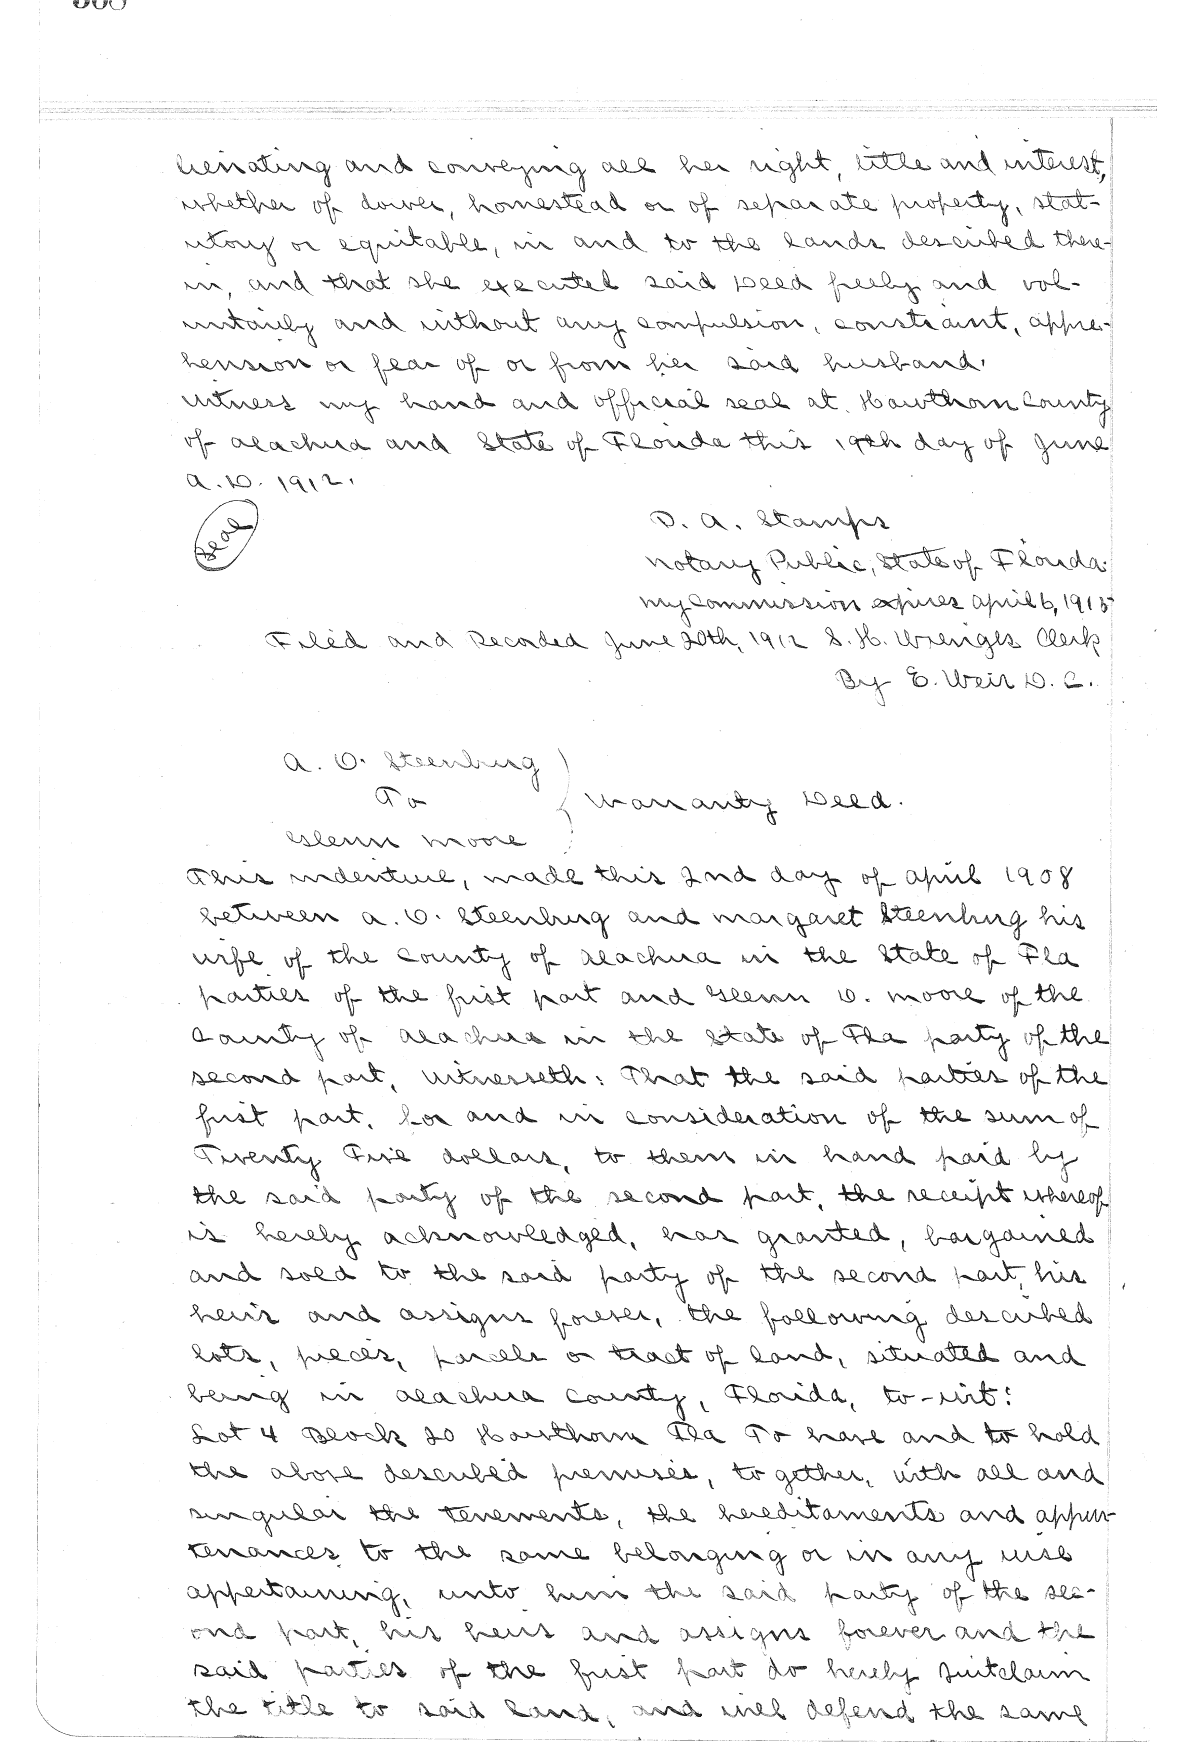 heirating and conveying all her right, title and interest,
whether of dower, homestead or of separate property, stat-
utory or equitable, in and to the lands described there-
in, and that she executed said Deed freely and vol-
untarily and without any compulsion, constraint, appre-
hension or fear of or from her said husband.
Witness my hand and official seal at Hawthorn County
of Alachua and State of Florida this 19th day of June
A.D. 1912.
Seal
D. A. Stamps
Notary Public, State of Florida.
My Commission expires April 6, 1915
Filed and Recorded June 20th, 1912 S. H. Wienges Clerk
By E. Weir D. C.
A. O. Steenburg
To
Warranty Deed.
Glenn Moore
This indenture, made this 2nd day of April 1908
between A. O. Steenburg and Margaret Steenburg his
wife of the County of Alachua in the State of Fla
parties of the first part and Glenn O. Moore of the
County of Alachua in the State of Fla party of the
second part, witnesseth: That the said parties of the
first part, for and in consideration of the sum of
Twenty Five dollars, to them in hand paid by
the said party of the second part, the receipt whereof
is hereby acknowledged, has granted, bargained
and sold to the said party of the second part, his
heirs and assigns forever, the following described
lots, pieces, parcels or tract of land, situated and
being in Alachua County, Florida, to-wit:
Lot 4 Block 20 Hawthorn Fla To have and to hold
the above described premises, together, with all and
singular the tenements, the hereditaments and appur-
tenances to the same belonging or in any wise
appertaining, unto him the said party of the sec-
ond part, his heirs and assigns forever and the
said parties of the first part do hereby
the title to said land, and will defend the same